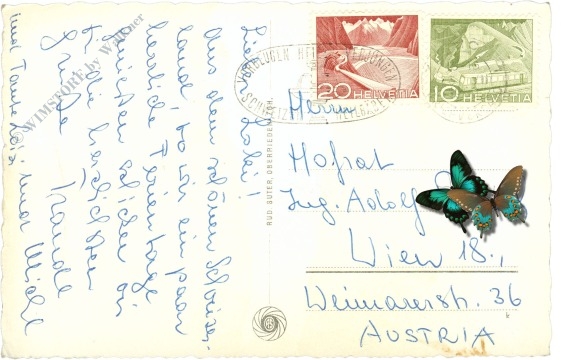 Lieber Loki!
Aus dem schönen Schweizer-
land, wo wir ein paar
herrliche Ferientage
genießen schicken wir
dir die herzlichsten
Grüße Traudl
und Tante und Michl
WIMSTORE by Wimmer
VORBEUGEN
20 HELVETIA
10 HELVETIA
RUD. SUTER, OBERRIEDEN-ZCH.
Herrn
Hofrat
Ing. Adolf
Wien 18.,
Weimarerstr. 36
AUSTRIA